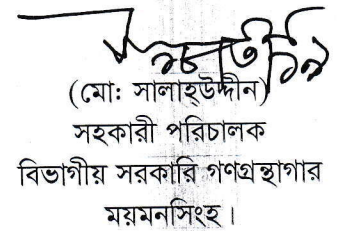 (মো: সালাহ্উদ্দীন)
সহকারী পরিচালক
বিভাগীয় সরকারি গণগ্রন্থাগার
ময়মনসিংহ।